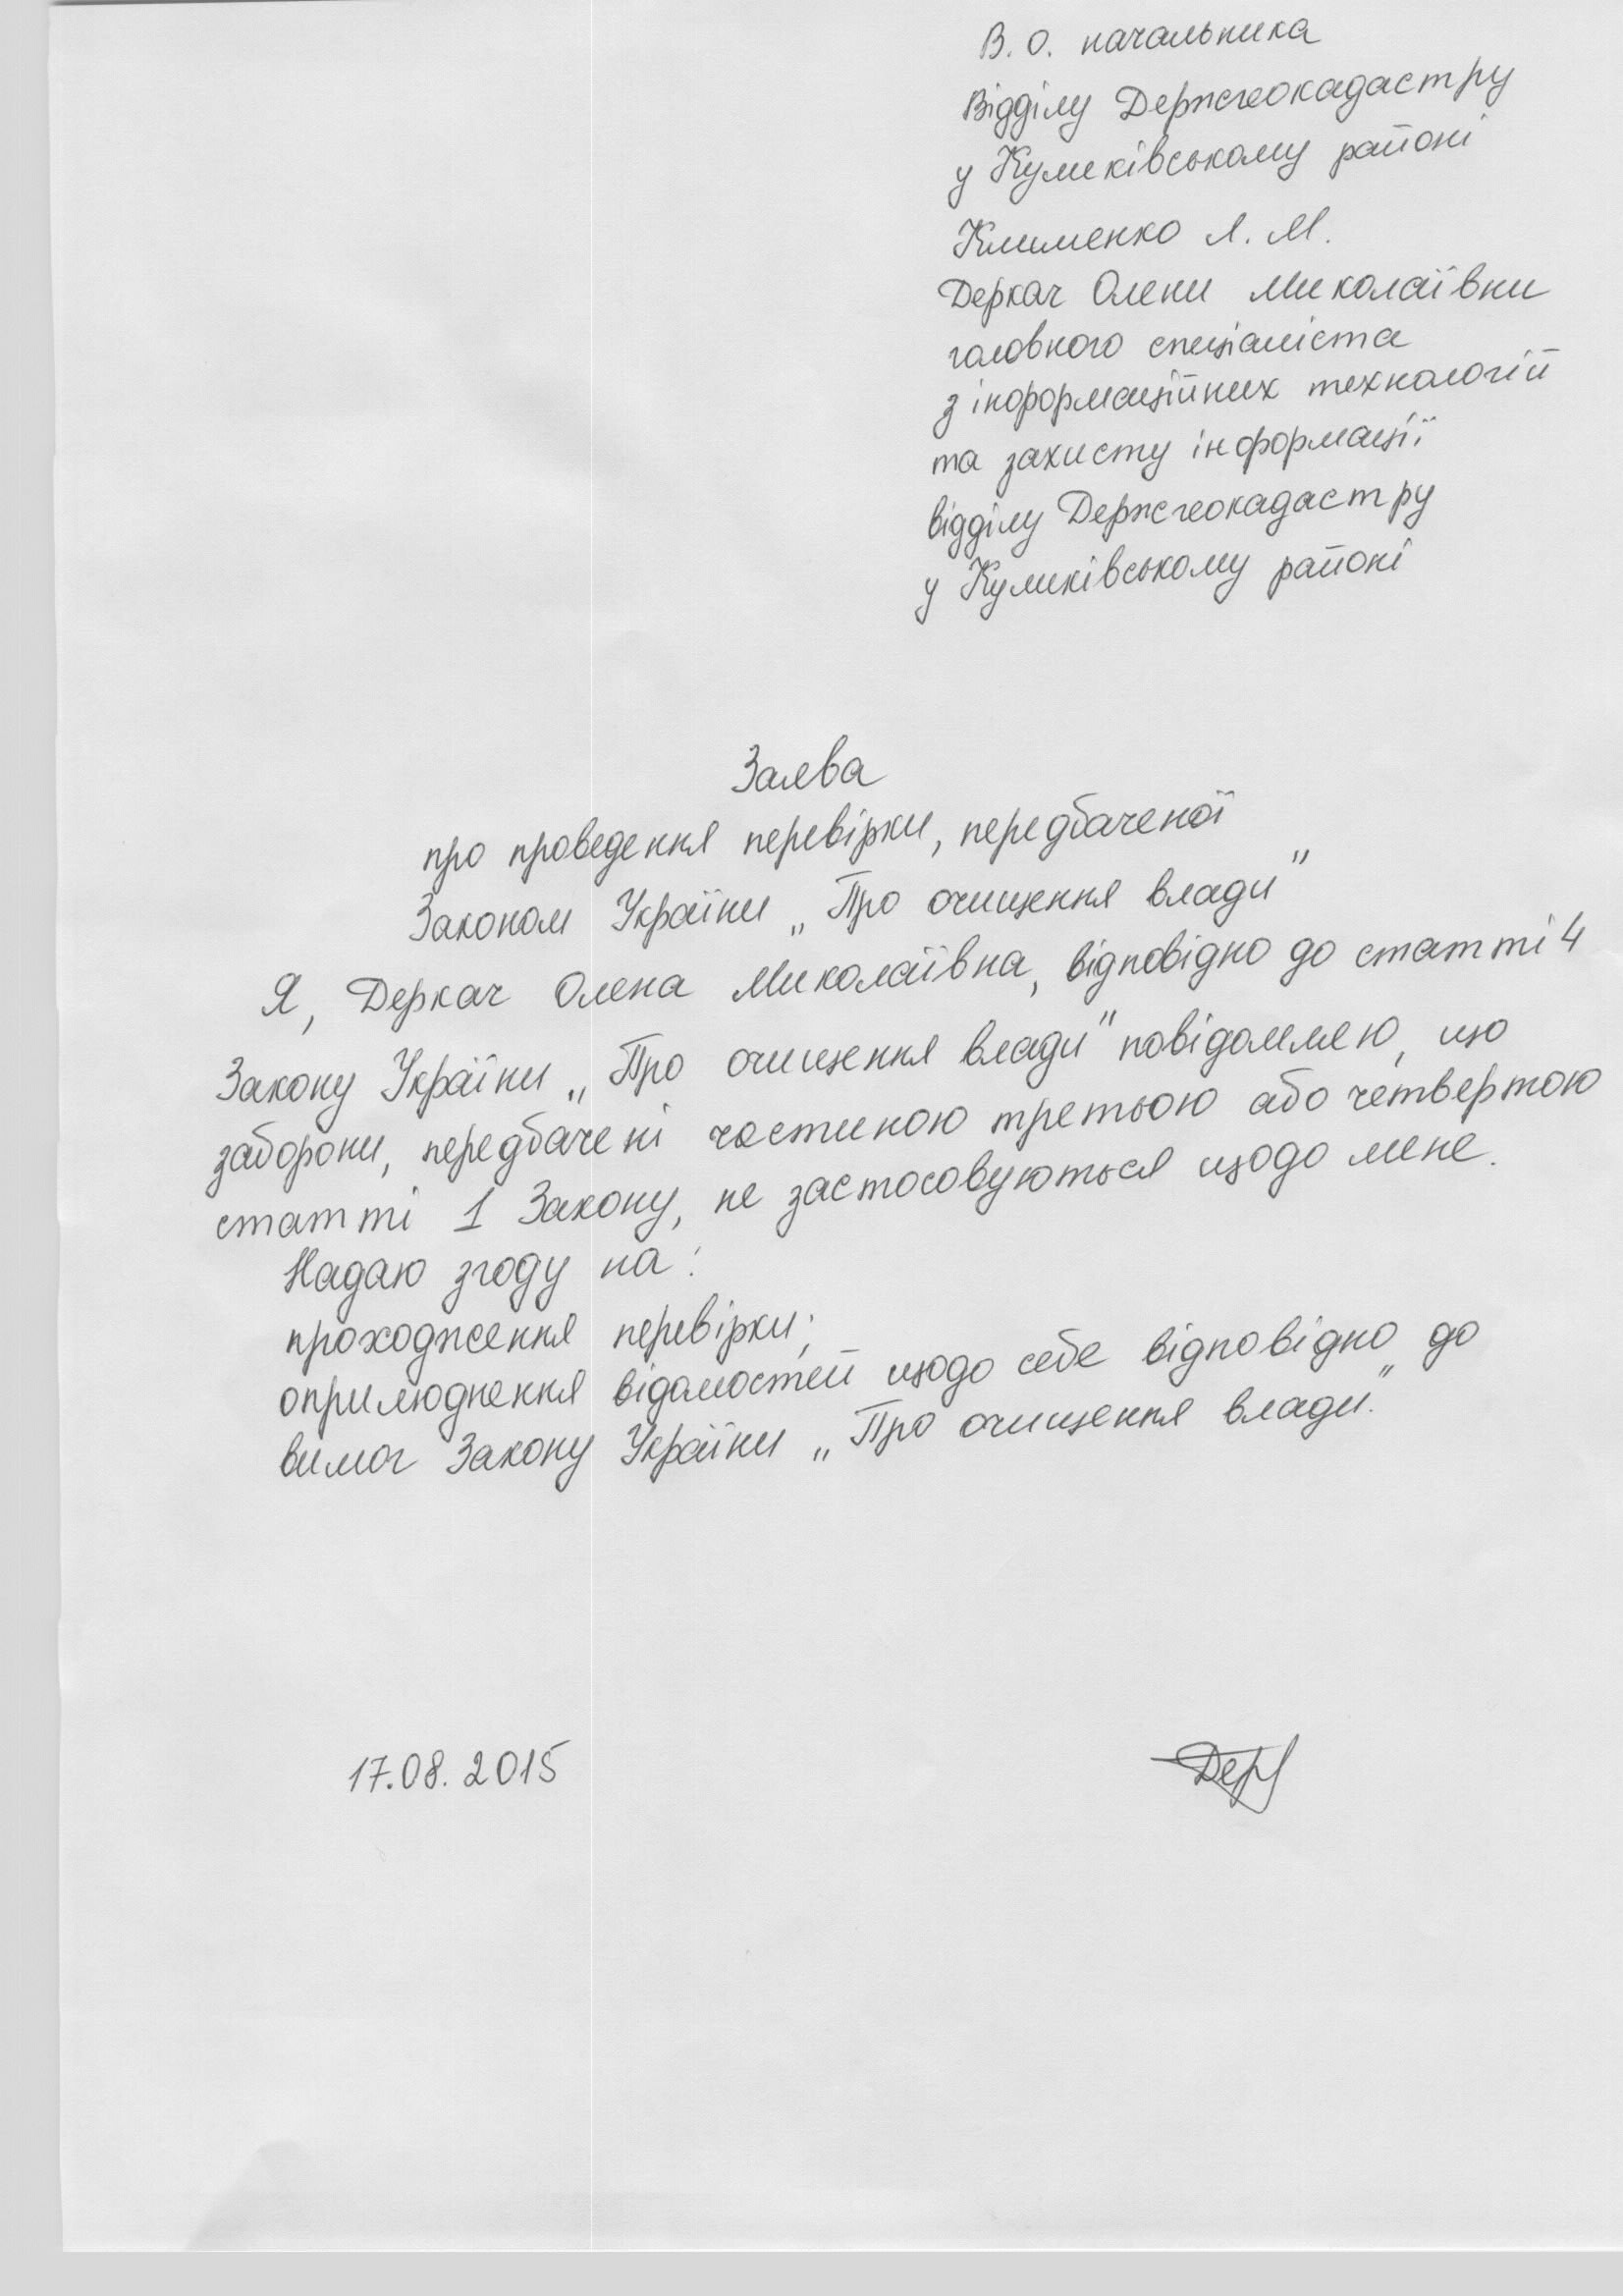 В. о. начальника
Відділу Держгеокадастру
у Куликівському районі
Клименко Л. М.
Деркач Олени Миколаївни
головного спеціаліста
з інформаційних технологій
та захисту інформації
відділу Держгеокадастру
у Куликівському районі
Заява
про проведення перевірки, передбаченої
Законом України „Про очищення влади"
Я, Деркач Олена Миколаївна, відповідно до статті 4
Закону України „Про очищення влади" повідомляю, що
заборони, передбачені частиною третьою або четвертою
статті 1 Закону, не застосовуються щодо мене.
Надаю згоду на:
проходження перевірки;
оприлюднення відомостей щодо себе відповідно до
вимог Закону України „Про очищення влади".
17.08.2015
Дер